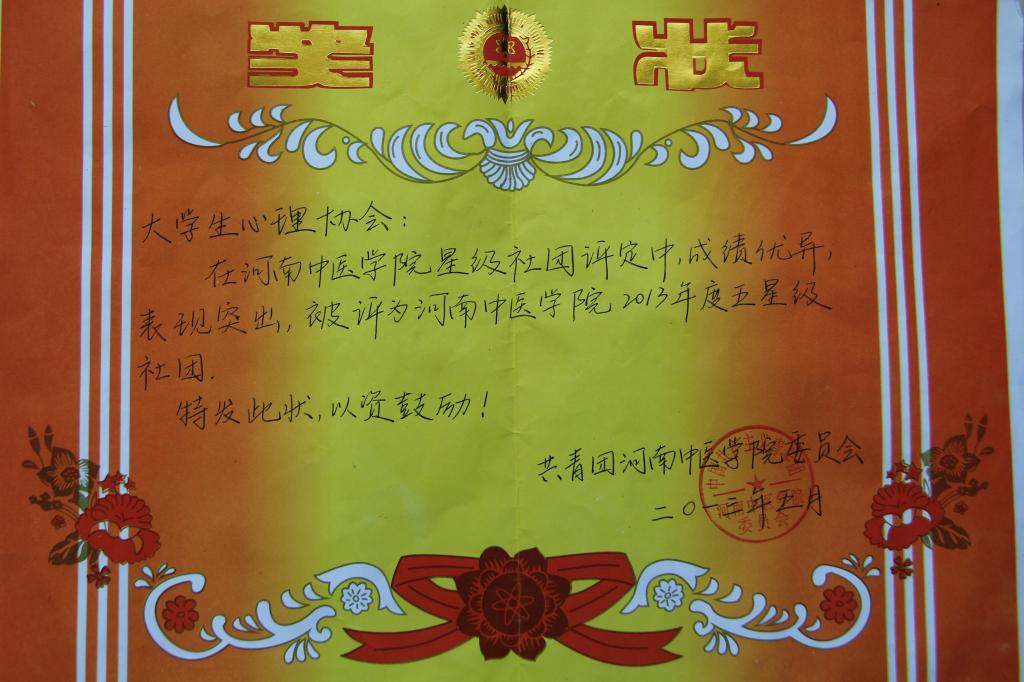 奖状
大学生心理协会:
在河南中医学院星级社团评定中,成绩优异,
表现突出,被评为河南中医学院2013年度五星级
社团.
特发此状,以资鼓励!
共青团河南中医学院委员会
二〇一三年五月
委员会